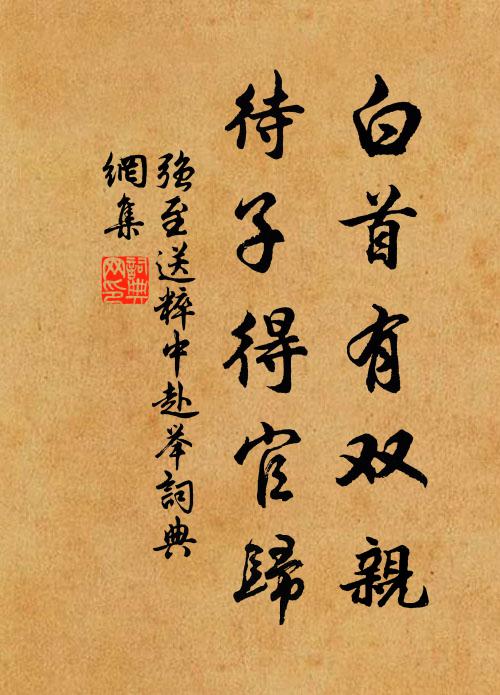 白首有双親
待子得官歸
强至送粹中赴举詞典
網集
詞典網印